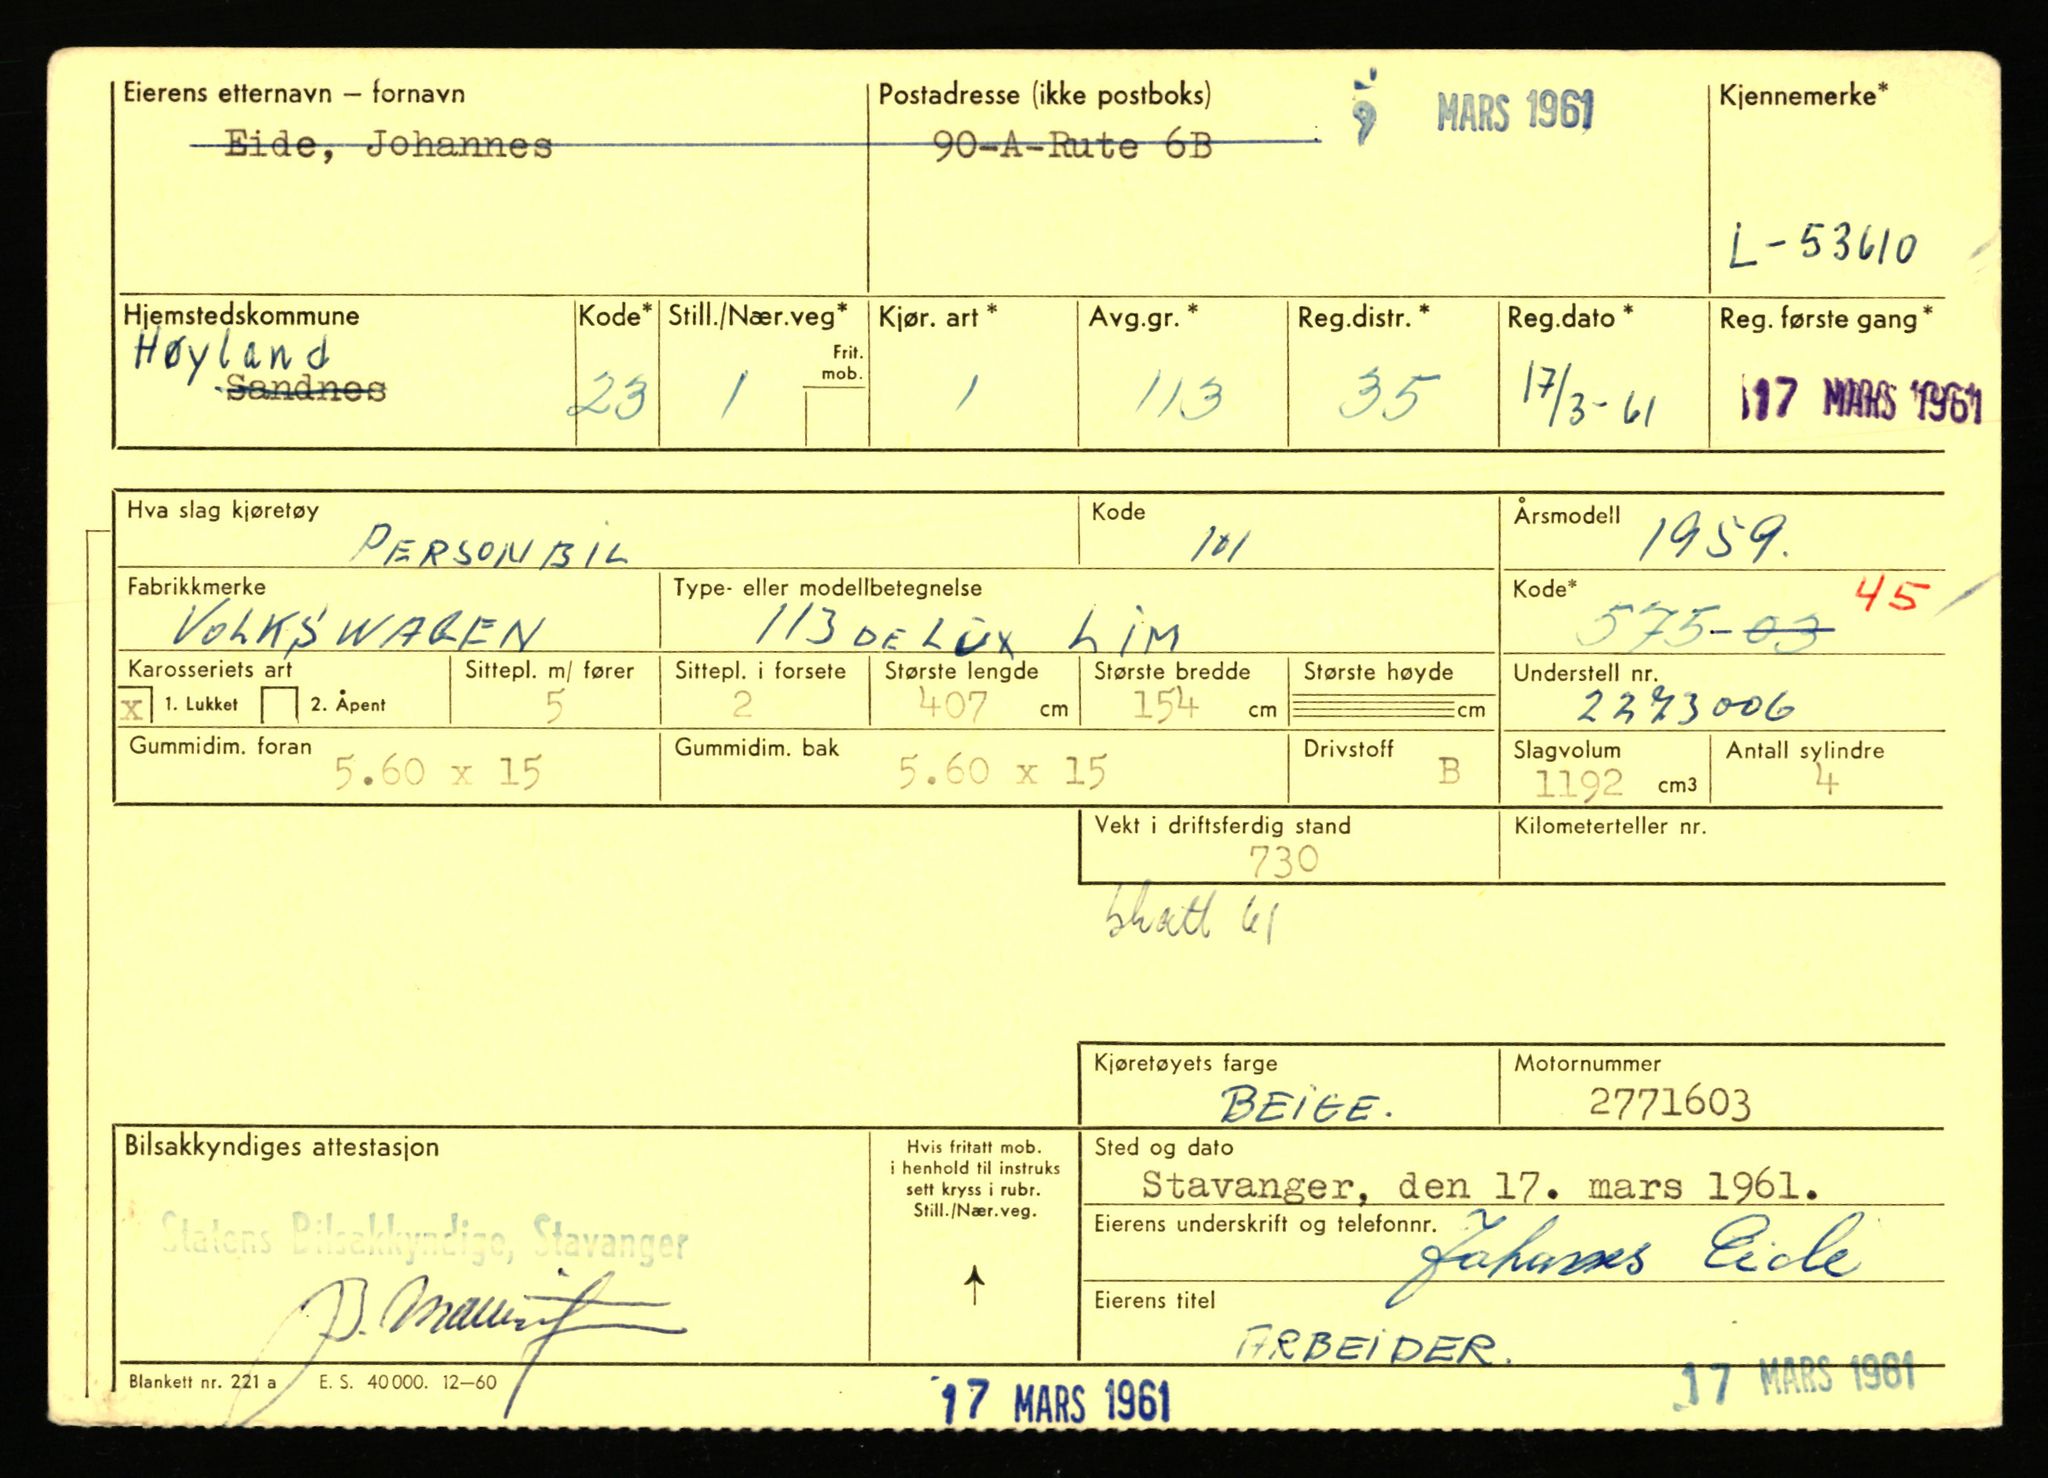 Eierens etternavn – fornavn Postadresse (ikke postboks) MARS 1961 Kjennemerke*
Eide, Johannes 90-A-Rute 6B
L-53610
Hjemstedskommune Kode* Still./Nær.veg* Kjør. art* Avg.gr.* Reg.distr.* Reg.dato* Reg. første gang*
Høyland Frit.
mob.
Sandnes 23 1 1 113 35 17/3-61 17 MARS 1961
Hva slag kjøretøy Kode Årsmodell
PERSONBIL 101 1959.
Fabrikkmerke Type- eller modellbetegnelse Kode* 45
VOLKSWAGEN 113 DE LUX LIM 575-03
Karosseriets art Sittepl. m/ fører Sittepl. i forsete Største lengde Største bredde Største høyde Understell nr.
x 1. Lukket 2. Åpent 5 2 407 cm 154 cm cm 2273006
Gummidim. foran Gummidim. bak Drivstoff Slagvolum Antall sylindre
5.60 x 15 5.60 x 15 B 1192 cm3 4
Vekt i driftsferdig stand Kilometerteller nr.
730
Skatt 61
Kjøretøyets farge Motornummer
BEIGE. 2771603
Bilsakkyndiges attestasjon Hvis fritatt mob. Sted og dato
i henhold til instruks
sett kryss i rubr. Stavanger, den 17. mars 1961.
Still./Nær.veg. Eierens underskrift og telefonnr.
Statens Bilsakkyndige, Stavanger Johannes Eide
Eierens titel
ARBEIDER.
Blankett nr. 221 a E. S. 40000. 12—60 17 MARS 1961 17 MARS 1961